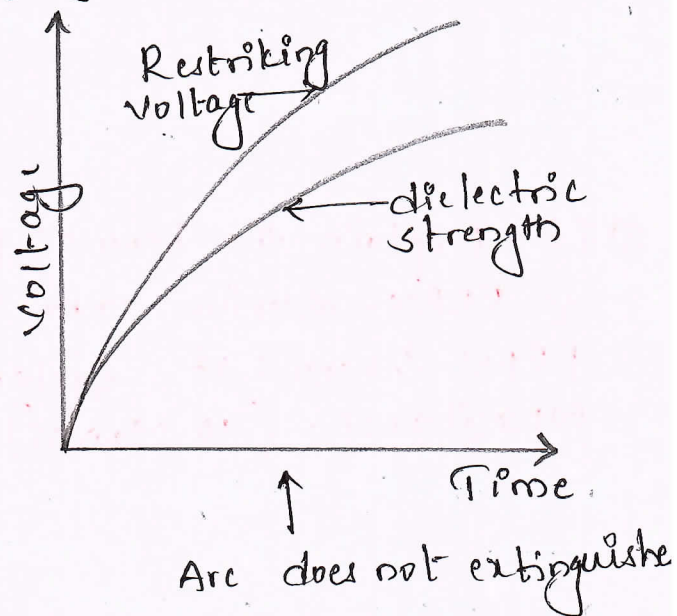 Restriking
voltage
dielectric
strength
voltage
Time
Arc does not extinguishe